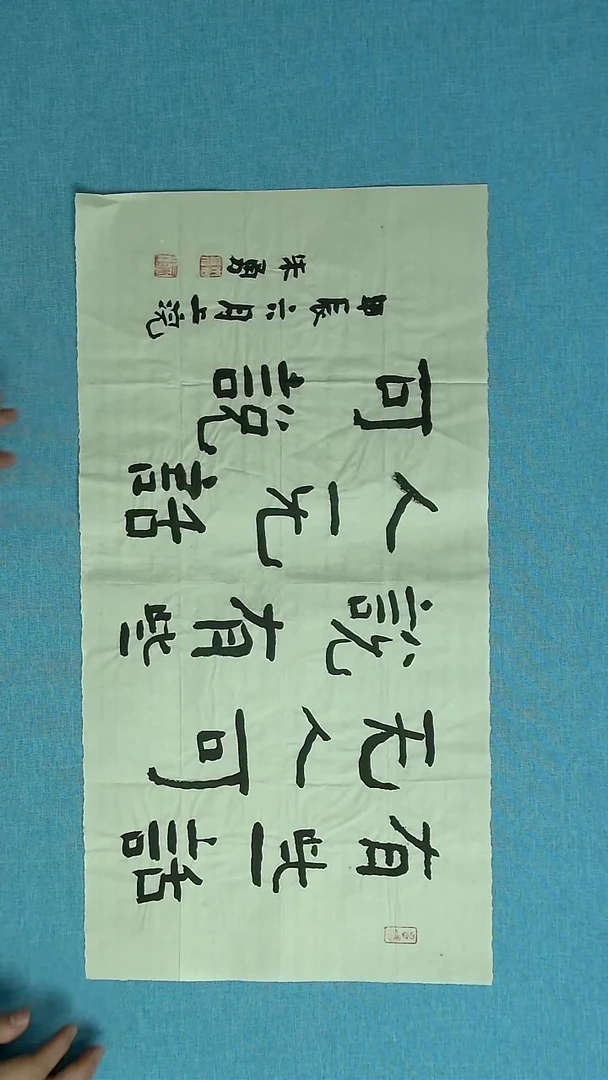 有些話
无人可
説有些
人无話
可説
甲辰六月上浣
朱勇